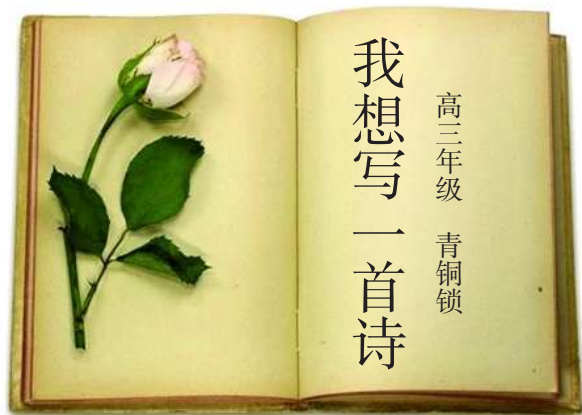 我想写一首诗
高三年级 青铜锁